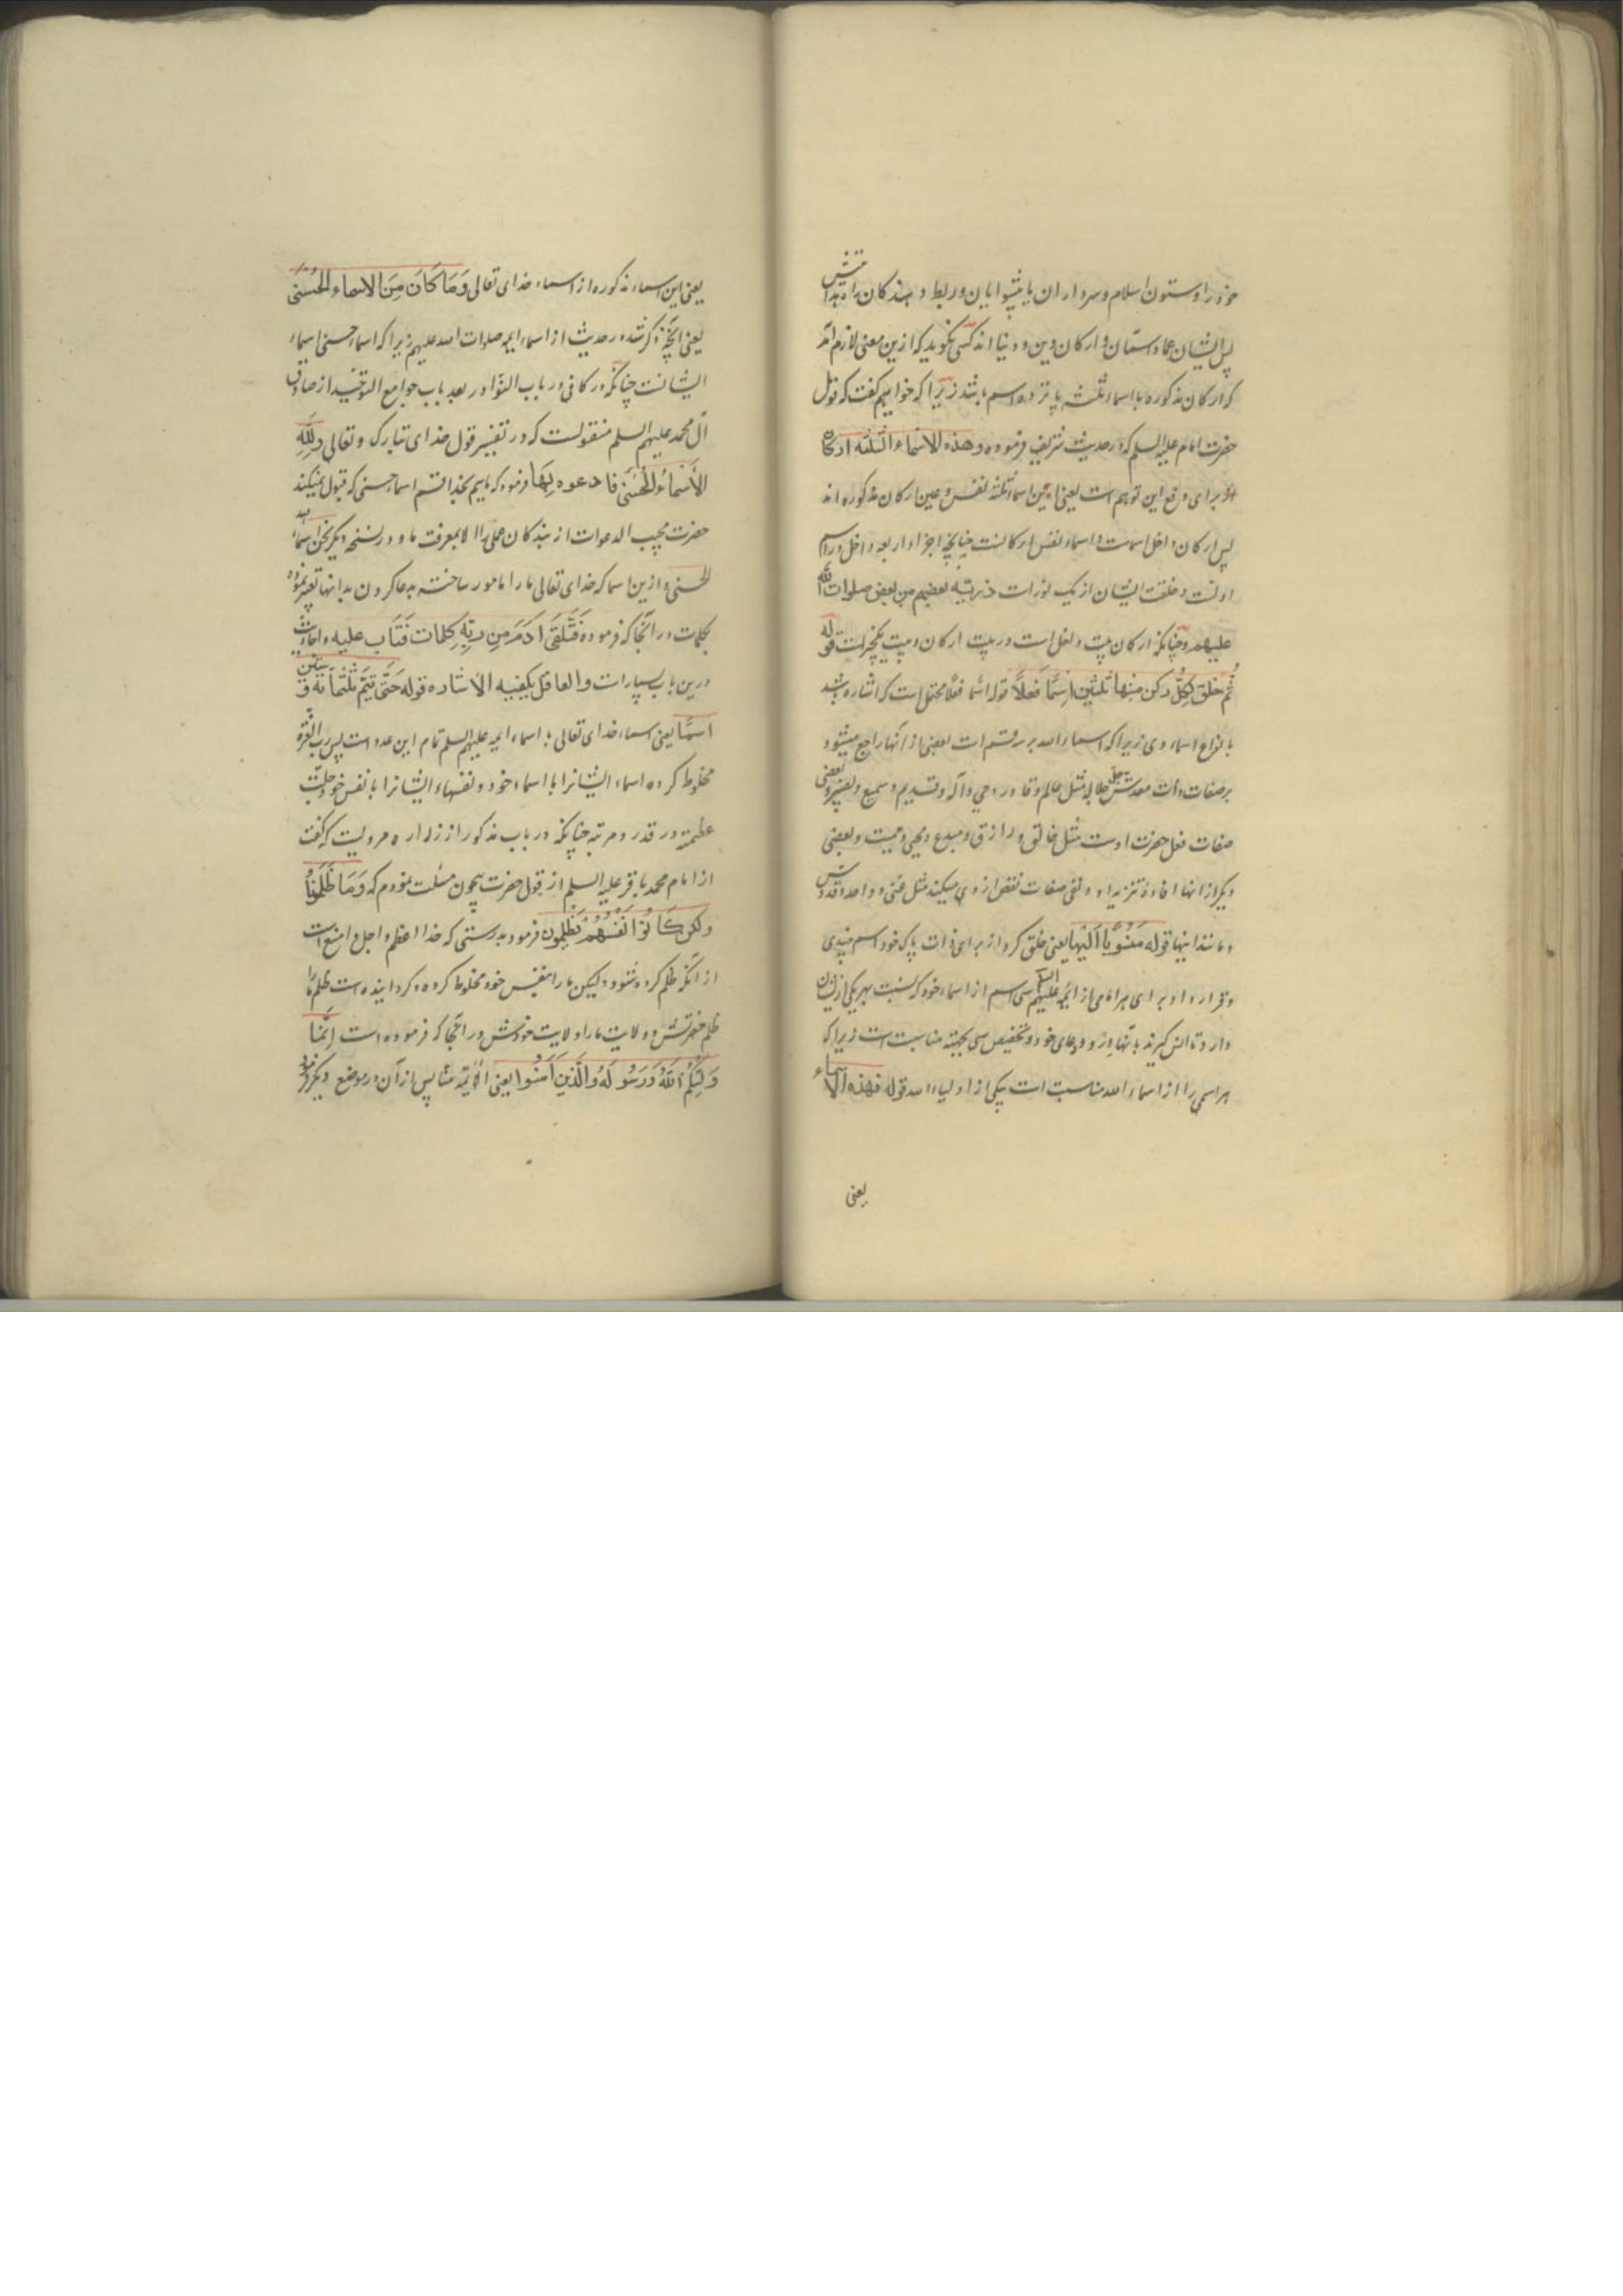 خود را و ستون اسلام و سرداران یا پیشوایان و ربط و بندگان را بدانش
پس ایشان عماد ستان و ارکان دین و دنیا اند کسی نگوید که ازین معنی لازم آمد
که ارکان مذکوره با اسماء ثلثه پانزده اسم باشد زیرا که خواهیم گفت که قول
حضرت امام علیه السلم که در حدیث شریف فرموده و هذه الاسماء الثلثه ارکان
برای دفع این توهم است یعنی این اسماء ثلثه نفس و عین ارکان مذکوره اند
پس ارکان داخل اسمست و اسماء نفس ارکانست چنانچه اجزاء اربعه داخل در اسم
اولست و خلقت ایشان از یک نور است ذریته بعضهم من بعض صلوات الله
علیهم و چنانکه ارکان بیت داخل است در بیت ارکان و بیت یکچیزست قوله
ثم خلق لکل رکن منها ثلثین اسما فعلا قوله اسما فعلا محتمل است که اشاره باشد
بانواع اسماء وی زیرا که اسماء الله بر سه قسم است بعضی از آنها راجع میشود
بر صفات ذات مقدسش جل جلاله مثل عالم و قادر و حی و آله و قدیم و سمیع و بصیر و بعضی
صفات فعل حضرت اوست مثل خالق و رازق و مبدع و محیی و ممیت و بعضی
دیگر از انها افاده تنزیه او و نفی صفات نقص از وی میکند مثل غنی و واحد و قدوس
و مانند اینها قوله منسوبا الیها یعنی خلق کرد از برای ذات پاک خود اسم چندی
و قرار داد برای هر امامی از ائمه علیهم السلم سی اسم از اسماء خود که نسبت بهر یکی ازیشان
دارد تا انس گیرند بآنها در ورد و دعای خود و تخصیص سی بجهته مناسبت است زیرا که
هر اسمی را از اسماء الله مناسبت است یکی از اولیاء الله قوله فهذه الاسماء
یعنی
یعنی این اسماء مذکوره از اسماء خدای تعالی وَمَا کَانَ مِنَ الاسماء الحُسنٰی
یعنی آنچه ذکر شد در حدیث از اسماء ایمه صلوات الله علیهم زیرا که اسماء حسنی اسماء
ایشانست چنانکه در کافی در باب النوادر بعد باب جوامع التوحید از صادق
آل محمد علیهم السلم منقولست که در تفسیر قول خدای تبارک و تعالی وَلِلّٰهِ
الاَسْمَاءُ الحُسنٰی فادعوه بِهَا فرمود که ماییم بخدا قسم اسماء حسنی که قبول نمیکند
حضرت مجیب الدعوات از بندگان عملی را الا بمعرفت ما و در نسخه دیگر نحن اسماء الله
الحسنی و ازین اسما که خدای تعالی ما را مامور ساخته بدعا کردن بدانها تعبیر نموده
بکلمات در آنجا که فرموده فَتَلَقَّی آدَمَ مِن رَبِّهِ کلمات فَتَاب علیه و احادیث
درین باب بسیارست و العاقل یکفیه الاشاره قوله حَتّٰی تَتِمَّ ثَلثمأته و ستین
اسمًا یعنی اسماء خدای تعالی با اسماء ایمه علیهم السلم تمام این عدد است پس رب العزة
مخلوط کرده اسماء ایشانرا با اسماء خود و نفسهاء ایشانرا با نفس خود جلت
عظمته در قدر و مرتبه چنانکه در باب مذکور از زراره مرویست که گفت
از امام محمد باقر علیه السلم از قول حضرت بیچون مسئلت نمودم که وَمَا ظَلَمُونَا
ولکن کَانُوا اَنْفُسَهُمْ یَظلِمُون فرمود بدرستی که خدا اعظم و اجل و امنع است
از آنکه ظلم کرده شود ولیکن ما را بنفس خود مخلوط کرده و گردانیده است ظلم ما را
ظلم حضرتش و ولایت ما را ولایت خودش در آنجا که فرموده است اِنَّمَا
وَلِیُّکُمُ اللّٰهُ وَرَسُولُهُ وَالَّذینَ آمَنُوا یعنی الائمه منا پس از آن در موضع دیگر فرمود